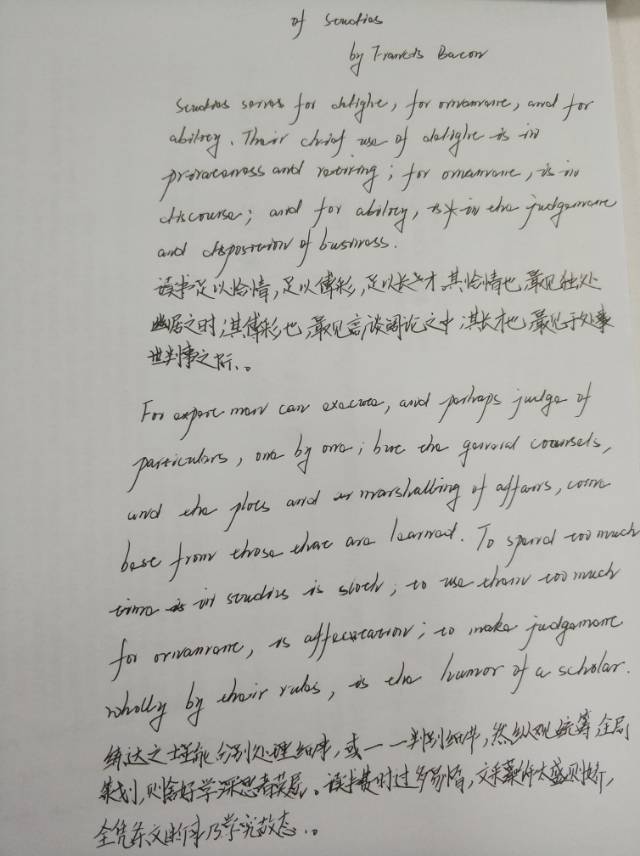 of Studies
by Francis Bacon
Studies serves for delight, for ornament, and for
ability. Their chief use of delight is in
privateness and retiring; for ornament, is in
discourse; and for ability, is in the judgement
and disposition of business.
读书足以怡情,足以傅彩,足以长才,其怡情也,最见独处
幽居之时;其傅彩也,最见高谈阔论之中;其长才也,最见于处事
世判事之际.。
For expert man can execute, and perhaps judge of
particulars, one by one; but the general counsels,
and the plots and marshalling of affairs, come
best from those that are learned. To spend too much
time in studies is sloth; to use them too much
for ornament, is affectation; to make judgement
wholly by their rules, is the humor of a scholar.
练达之士虽能分别处理细事,或一一判别细件,然纵观统筹全局
策划,则舍好学深思者莫属。读书费时过多易惰,文采藻饰太盛则矫,
全凭条文断事乃学究故态.。